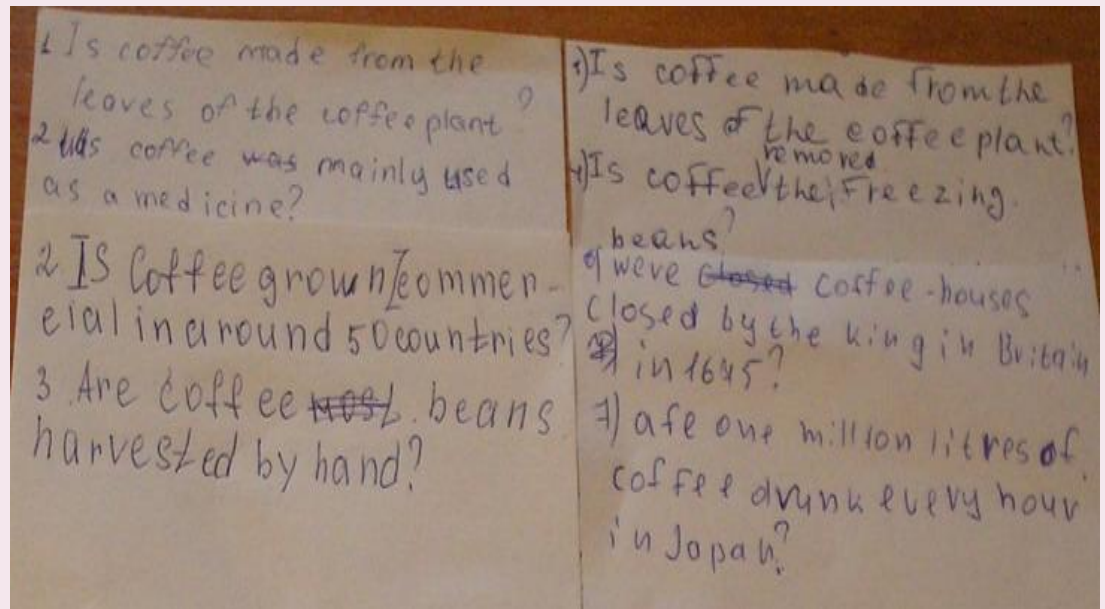 1 Is coffee made from the
leaves of the coffee plant?
2 Was coffee was mainly used
as a medicine?
2 Is Coffee grown commer-
cial in around 50 countries?
3 Are coffee most beans
harvested by hand?
1) Is coffee made from the
leaves of the coffee plant?
removed
4) Is coffee the freezing.
beans?
6) were closed coffee-houses
closed by the king in Britain
in 1675?
7) are one million litres of
coffee drunk every hour
in Japan?